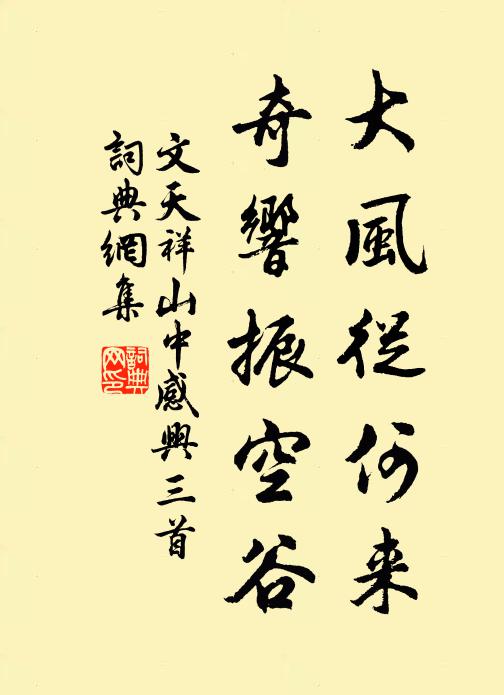 大風從何来
奇響振空谷
文天祥山中感興三首
詞典網集
詞典网印